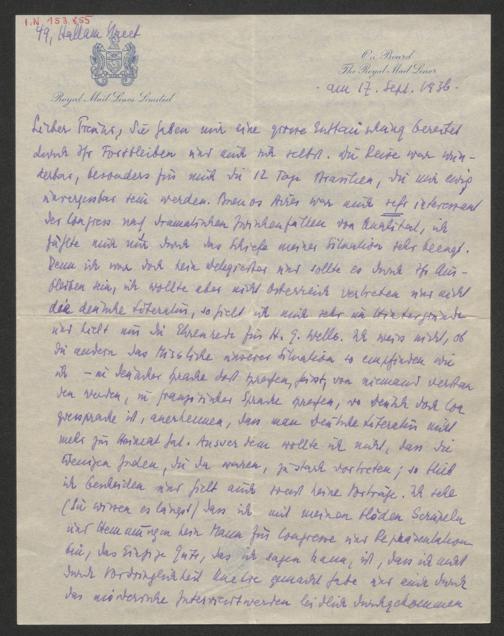 I.N. 153.855
49, Hallam Street
On Board
The Royal Mail Liner
am 17. Sept. 1936.
Royal Mail Lines Limited
Lieber Freund, Sie haben mir eine grosse Enttäuschung bereitet
durch Ihr Fortbleiben und auch sich selbst. Die Reise war wun-
derbar, besonders für mich die 12 Tage Brasilien, die mir ewig
unvergessbar sein werden. Buenos Aires war auch sehr interessant
der Congress nach dramatischen Zwischenfällen von Qualität, ich
fühlte mich nur durch das Schiefe meiner Situation sehr beengt.
Denn ich war doch kein Delegierter und sollte es durch Ihr Aus-
bleiben sein, ich wollte aber nicht Österreich vertreten und nicht
die deutsche Literatur, so hielt ich mich sehr im Hintergrunde
und hielt nur die Ehrenrede für H. G. Wells. Ich weiss nicht, ob
die andern das Missliche unserer Situation so empfinden wie
ich – in deutscher Sprache dort sprechen, heisst, von niemand verstan
den werden, in französischer Sprache sprechen, wo Deutsch doch Con
gresssprache ist, anerkennen, dass man deutsche Literatur nicht
mehr zur Heimat hat. Ausserdem wollte ich nicht, dass die
wenigen Juden, die da waren, zu stark vortreten; so blieb
ich bescheiden und hielt auch sonst keine Vorträge. Ich sehe
(Sie wissen es längst) dass ich mit meinen blöden Scrupeln
und Hemmungen kein Mann für Congresse und Repräsentation
bin, das Einzige Gute, das ich sagen kann, ist, dass ich mich nicht
durch Vordringlichkeit gemacht habe und auch durch
das mörderische Interviewtwerden leidlich durchgekommen